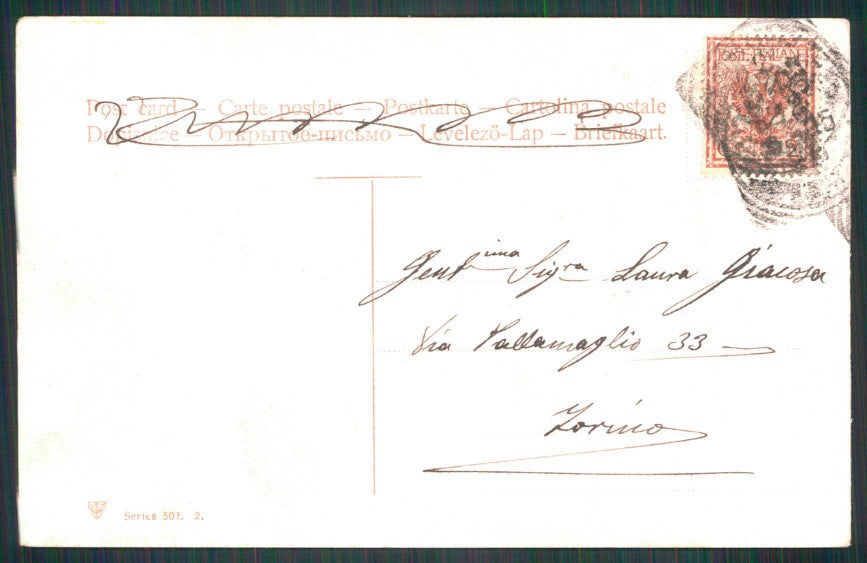 Post card — Carte postale — Postkarte — Cartolina postale
Dopisnice — Открытое-письмо — Levelező-Lap — Briefkaart.
POSTE ITALIANE
Gent.ima Sigra Laura Giacosa
Via Pallamaglio 33
Torino
Series 502. 2.